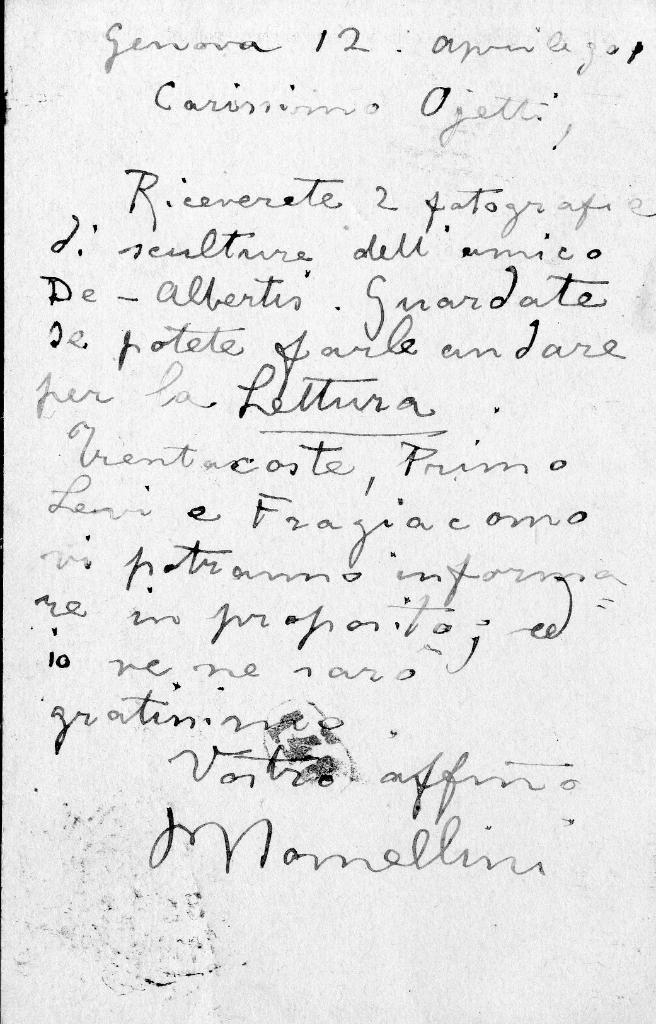 Genova 12. aprile 901
Carissimo Ojetti,
Riceverete 2 fotografie
di sculture dell'amico
De-Albertis. Guardate
se potete farle andare
per la Lettura.
Trentacoste, Primo
Levi e Fragiacomo
vi potranno informa=
re in proposito; ed
io ve ne sarò
gratissimo.
Vostro affmo
Nomellini